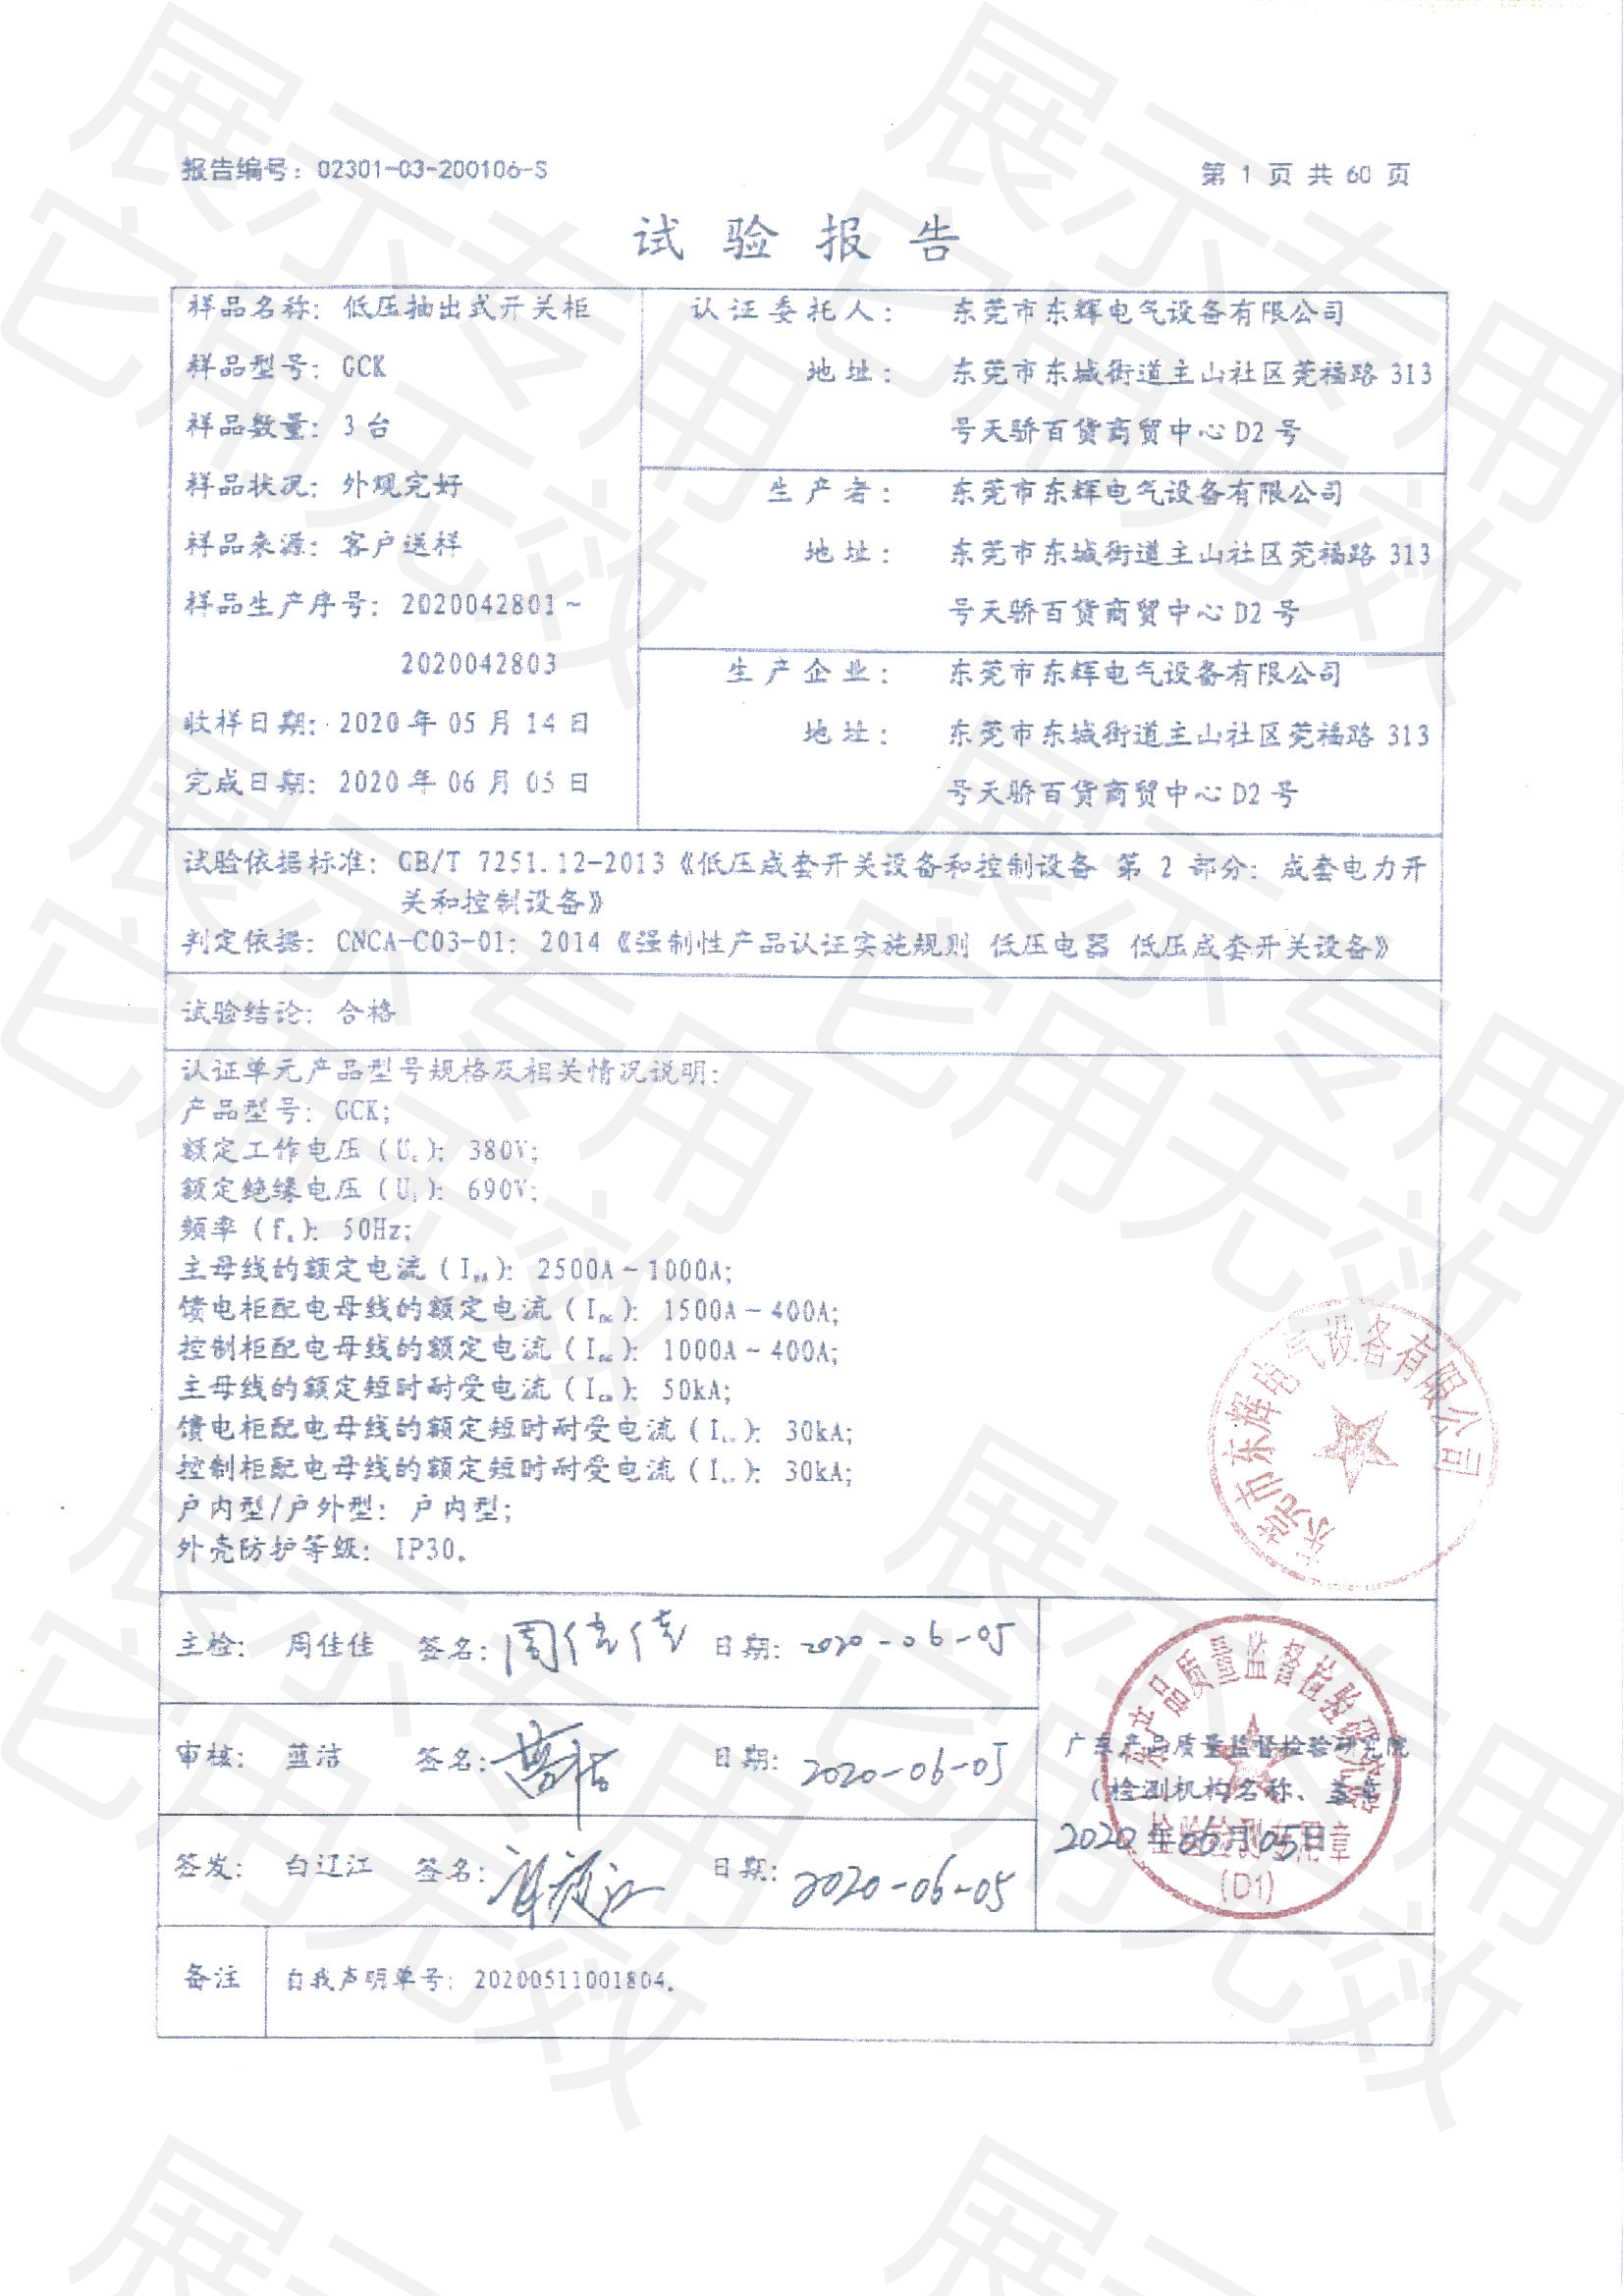 报告编号：02301-03-200106-S
第 1 页 共 60 页
试验报告
样品名称：低压抽出式开关柜
样品型号：GCK
样品数量：3 台
样品状况：外观完好
样品来源：客户送样
样品生产序号：2020042801～
2020042803
收样日期：2020 年 05 月 14 日
完成日期：2020 年 06 月 05 日
认证委托人：东莞市东辉电气设备有限公司
地址：东莞市东城街道主山社区莞福路 313
号天骄百货商贸中心 D2 号
生产者：东莞市东辉电气设备有限公司
地址：东莞市东城街道主山社区莞福路 313
号天骄百货商贸中心 D2 号
生产企业：东莞市东辉电气设备有限公司
地址：东莞市东城街道主山社区莞福路 313
号天骄百货商贸中心 D2 号
试验依据标准：GB/T 7251.12-2013《低压成套开关设备和控制设备 第 2 部分：成套电力开
关和控制设备》
判定依据：CNCA-C03-01：2014《强制性产品认证实施规则 低压电器 低压成套开关设备》
试验结论：合格
认证单元产品型号规格及相关情况说明：
产品型号：GCK；
额定工作电压（Ue）：380V；
额定绝缘电压（Ui）：690V；
频率（fn）：50Hz；
主母线的额定电流（InA）：2500A～1000A；
馈电柜配电母线的额定电流（Inc）：1500A～400A；
控制柜配电母线的额定电流（Inc）：1000A～400A；
主母线的额定短时耐受电流（Icw）：50kA；
馈电柜配电母线的额定短时耐受电流（Icw）：30kA；
控制柜配电母线的额定短时耐受电流（Icw）：30kA；
户内型/户外型：户内型；
外壳防护等级：IP30。
东莞市东辉电气设备有限公司
主检：周佳佳 签名：周佳佳 日期：2020-06-05
审核：蓝洁 签名： 日期：2020-06-05
签发：白辽江 签名： 日期：2020-06-05
广东产品质量监督检验研究院
（检测机构名称、盖章）
2020 年 06 月 05 日
检验检测专用章
(D1)
备注 自我声明单号：20200511001804。
展示专用
它用无效
展示专用
它用无效
展示专用
它用无效
展示专用
它用无效
展示专用
它用无效
展示专用
它用无效